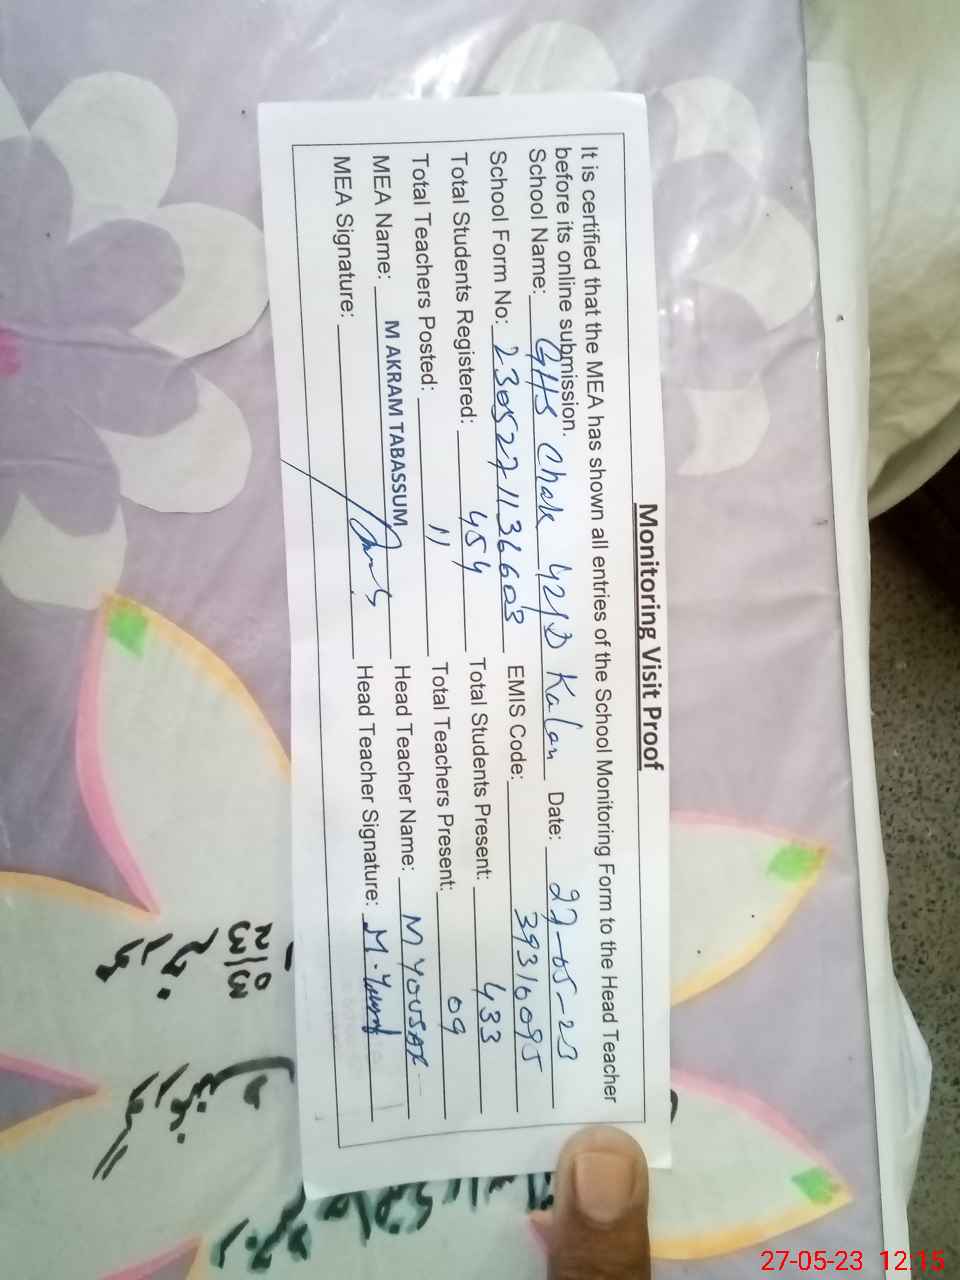 Monitoring Visit Proof
It is certified that the MEA has shown all entries of the School Monitoring Form to the Head Teacher
before its online submission.
School Name: GHS Chak 42/D Kalan Date: 27-05-23
School Form No: 2305271136603 EMIS Code: 39310095
Total Students Registered: 454 Total Students Present: 433
Total Teachers Posted: 11 Total Teachers Present: 09
MEA Name: M AKRAM TABASSUM Head Teacher Name: M YOUSAF
MEA Signature: Head Teacher Signature: M. Yousaf
27-05-23 12:15